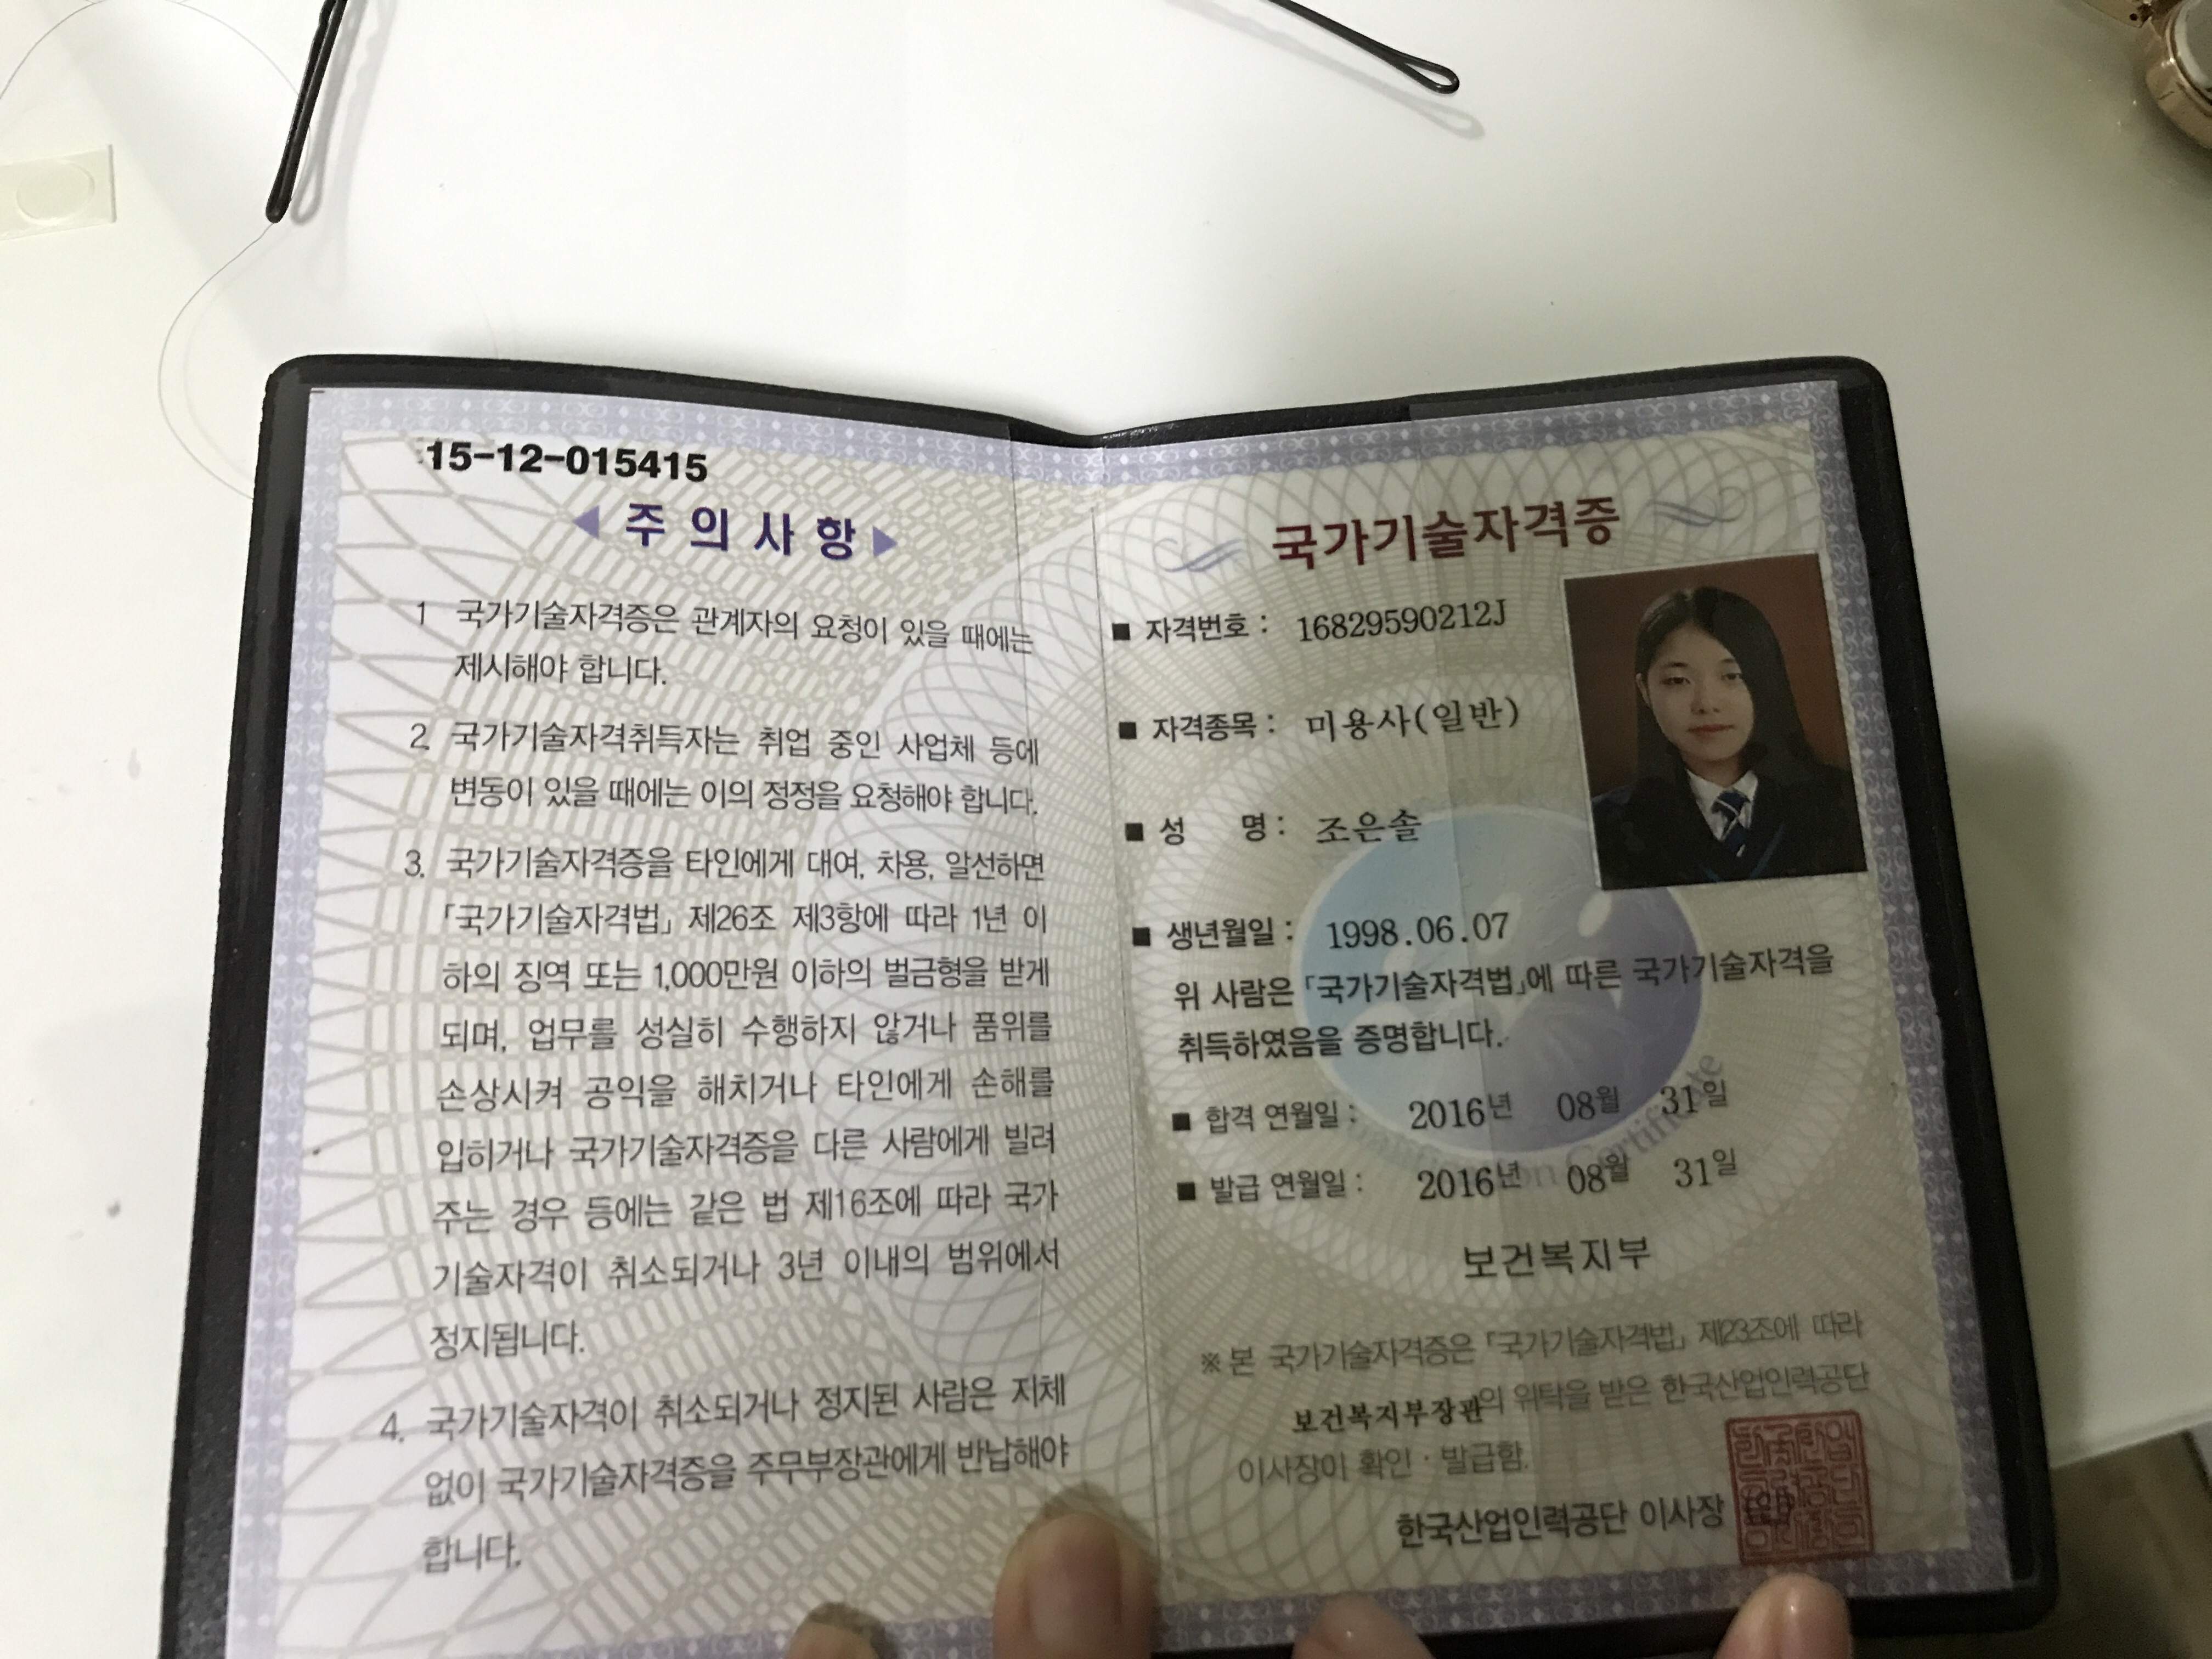 15-12-015415
◀ 주 의 사 항 ▶
1 국가기술자격증은 관계자의 요청이 있을 때에는
제시해야 합니다.
2. 국가기술자격취득자는 취업 중인 사업체 등에
변동이 있을 때에는 이의 정정을 요청해야 합니다.
3. 국가기술자격증을 타인에게 대여, 차용, 알선하면
「국가기술자격법」 제26조 제3항에 따라 1년 이
하의 징역 또는 1,000만원 이하의 벌금형을 받게
되며, 업무를 성실히 수행하지 않거나 품위를
손상시켜 공익을 해치거나 타인에게 손해를
입히거나 국가기술자격증을 다른 사람에게 빌려
주는 경우 등에는 같은 법 제16조에 따라 국가
기술자격이 취소되거나 3년 이내의 범위에서
정지됩니다.
4. 국가기술자격이 취소되거나 정지된 사람은 지체
없이 국가기술자격증을 주무부장관에게 반납해야
합니다.
국가기술자격증
■ 자격번호 : 16829590212J
■ 자격종목 : 미용사(일반)
■ 성 명 : 조은솔
■ 생년월일 : 1998.06.07
위 사람은 「국가기술자격법」에 따른 국가기술자격을
취득하였음을 증명합니다.
■ 합격 연월일 : 2016년 08월 31일
■ 발급 연월일 : 2016년 08월 31일
보건복지부
※ 본 국가기술자격증은 「국가기술자격법」 제23조에 따라
보건복지부장관의 위탁을 받은 한국산업인력공단
이사장이 확인 · 발급함.
한국산업인력공단 이사장